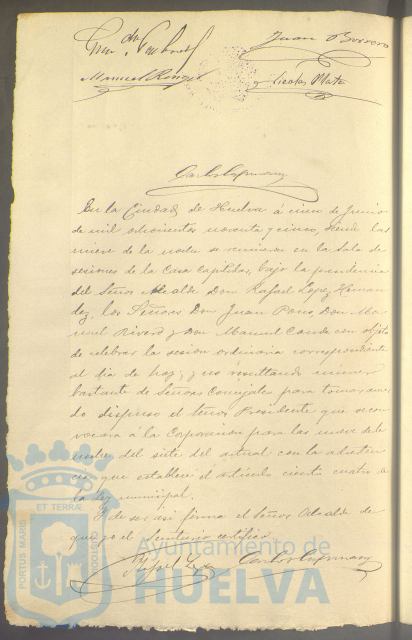 Juan Borrero
Manuel
Nicolas
En la Ciudad de Huelva á cinco de Junio
de mil ochocientos noventa y cinco, siendo las
nueve de la noche se reunieron en la Sala de
sesiones de la Casa Capitular, bajo la presidencia
del Señor Alcalde Don Rafael Lopez Hernan
dez, los Señores Don Juan Pons, Don Ma
nuel Rivero y Don Manuel con objeto
de celebrar la sesion ordinaria correspondiente
al dia de hoy; y no resultando número
bastante de Señores Concejales para tomar acuer
do dispuso el Señor Presidente que se con
vocara á la Corporacion para las nueve de la
noche del siete del actual con la adverten
cia que establece el artículo ciento cuatro de
la ley municipal.
Y de ser así firma el Señor Alcalde de
que yo el Secretario certifico
Rafael Lopez
PORTUS MARIS
ET TERRÆ
CUSTODIA
Ayuntamiento de
HUELVA